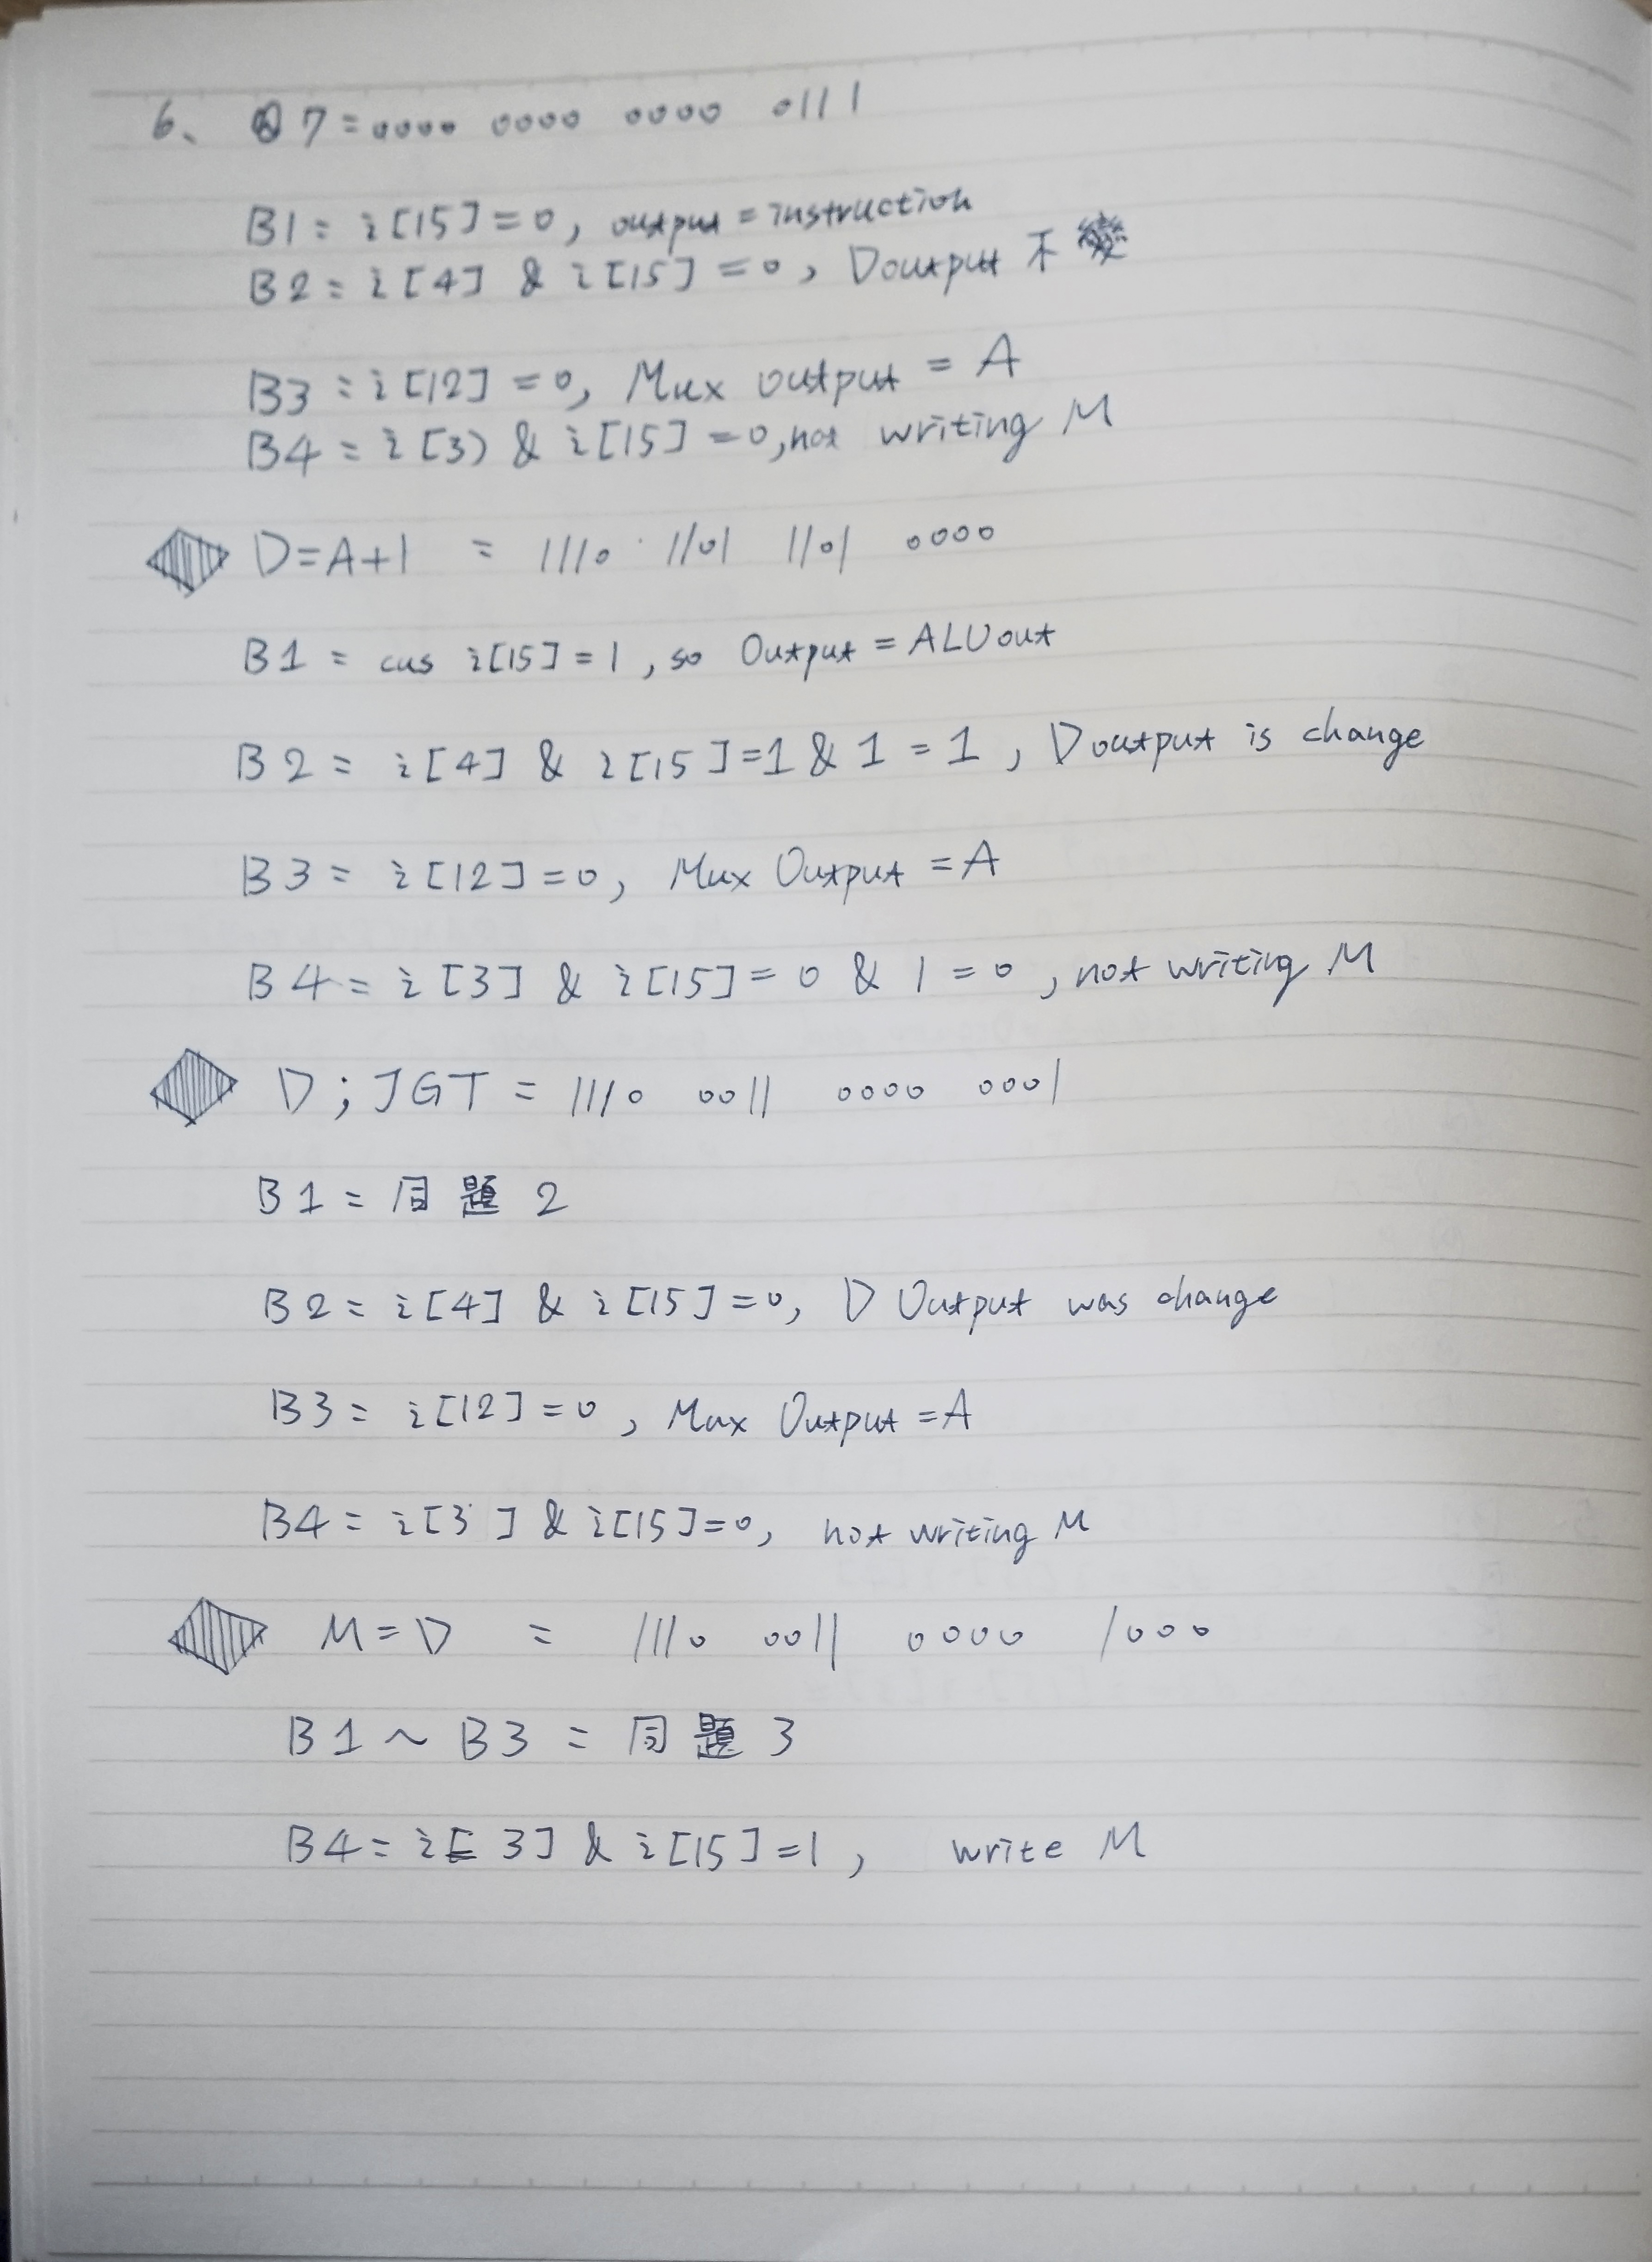 6、 @7 = 0000 0000 0000 0111
B1 = i[15] = 0, output = instruction
B2 = i[4] & i[15] = 0, Doutput 不變
B3 = i[12] = 0, Mux output = A
B4 = i[3) & i[15] = 0, not writing M
D=A+1 = 1110 1101 1101 0000
B1 = cus i[15] = 1, so Output = ALUout
B2 = i[4] & i[15] = 1 & 1 = 1, Doutput is change
B3 = i[12] = 0, Mux Output = A
B4 = i[3] & i[15] = 0 & 1 = 0, not writing M
D;JGT = 1110 0011 0000 0001
B1 = 同題2
B2 = i[4] & i[15] = 0, D Output was change
B3 = i[12] = 0, Mux Output = A
B4 = i[3] & i[15] = 0, not writing M
M=D = 1110 0011 0000 1000
B1 ~ B3 = 同題3
B4 = i[3] & i[15] = 1, write M